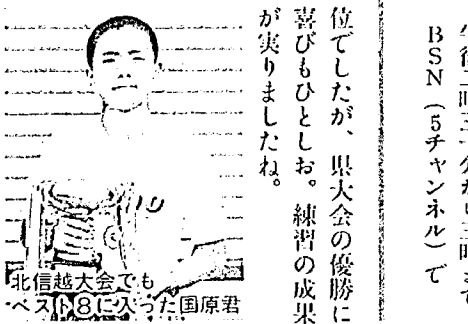 BSN（5チャンネル）で
位でしたが、県大会の優勝に
喜びもひとしお。練習の成果
が実りましたね。
北信越大会でも
ベスト8に入った国原君